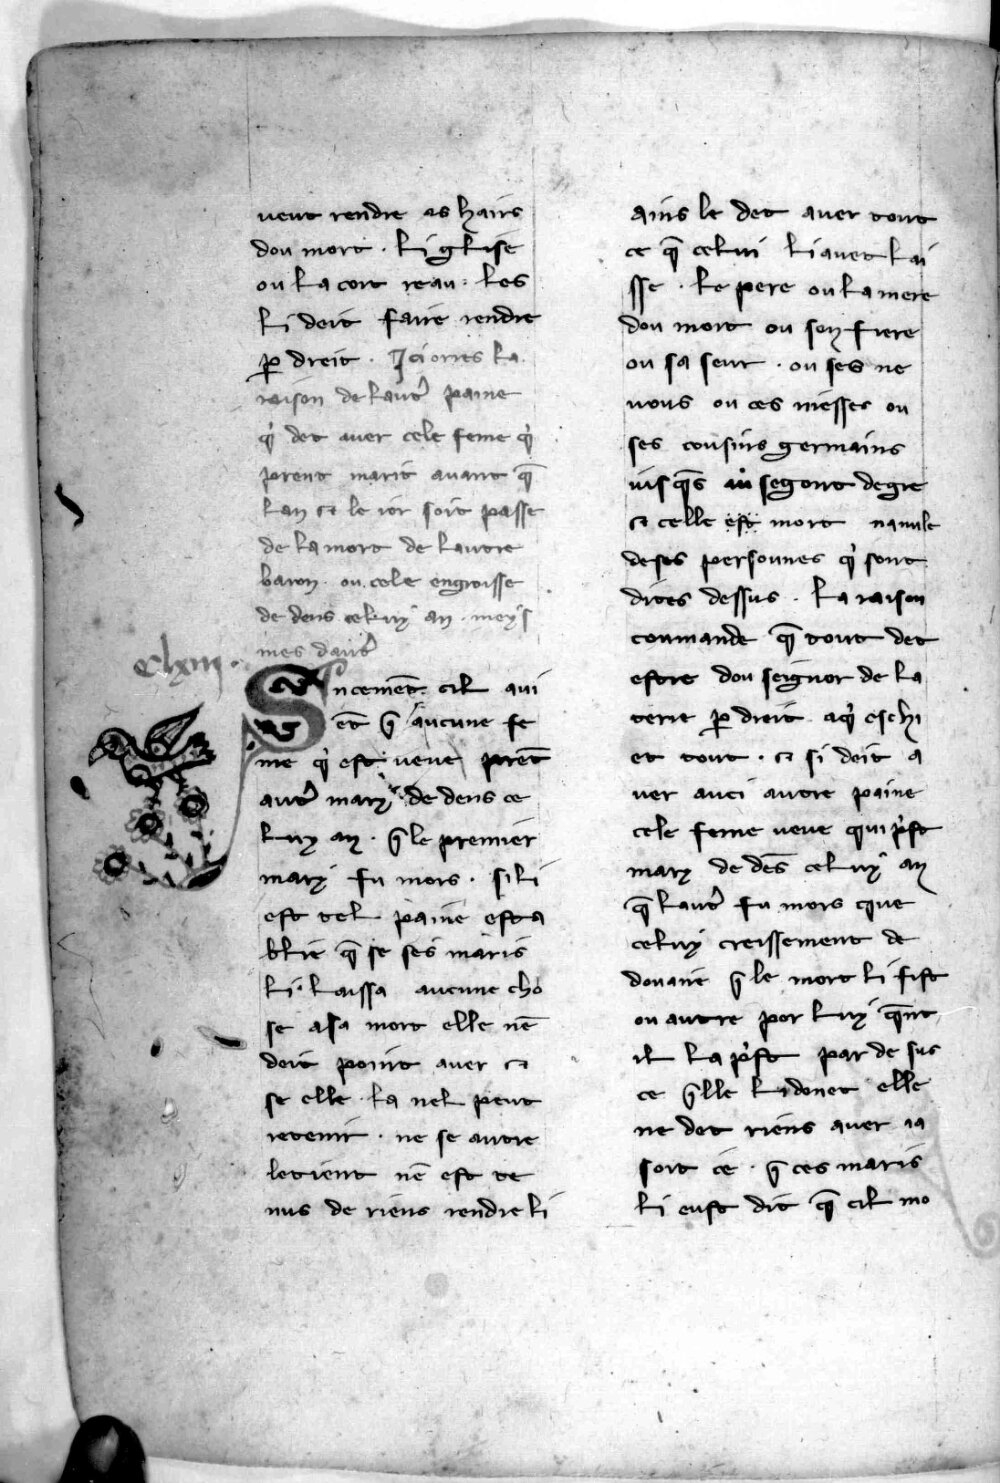 veut rendre as hairs
dou mort . Li glise
ou la cort reau : les
li doit faire rendre
p̲ dreit . Ici ores la
raison de lautᷣ paine
qͥ det aver cele feme qͥ
prent marit avant q̄
lan et le ior soit passe
de la mort de lautre
baron . ou cele engroisse
de dens celuy an . meys
mes dautᷣ
clxiii.
Sincement cil qui
et q̄ aucune fe
me qͥ est veve prēt
autᷣ mary de dens ce
luy an . q̄ le premier
mary fu mors . si li
est tel paine esta
blie q̄ se ses maris
li laissa aucune cho
se a sa mort elle nē
doit point aver et
se elle la nel peut
retenir . ne se autre
le tient nē est te
nus de riens rendre li
ains le det aver tout
ce q̄ celui li avet lai
sse . le pere ou la mere
dou mort ou son frere
ou sa seur . ou ses ne
vous ou ces niesses ou
ses cousins germains
iusq̄s au segont degre
et celle est mort n a nule
de ses persounes qͥ sont
dites dessus . la raison
coumande q̄ tout det
estre dou seignor de la
terre p̲ dreit aqͥ eschi
et tout . et si doit a
ver auci autre paine
cele feme veve qui pͥst
mary de dēs celuy an
q̄ lautᷣ fu mors que
celuy creissement de
douaire q̄ le mort li fist
ou autre por luy q̄nt
il la pͥst par de sus
ce q̄lle li donet elle
ne det riens aver ia
soit ce . q̄ ces maris
li eust dit q̄ cil mo